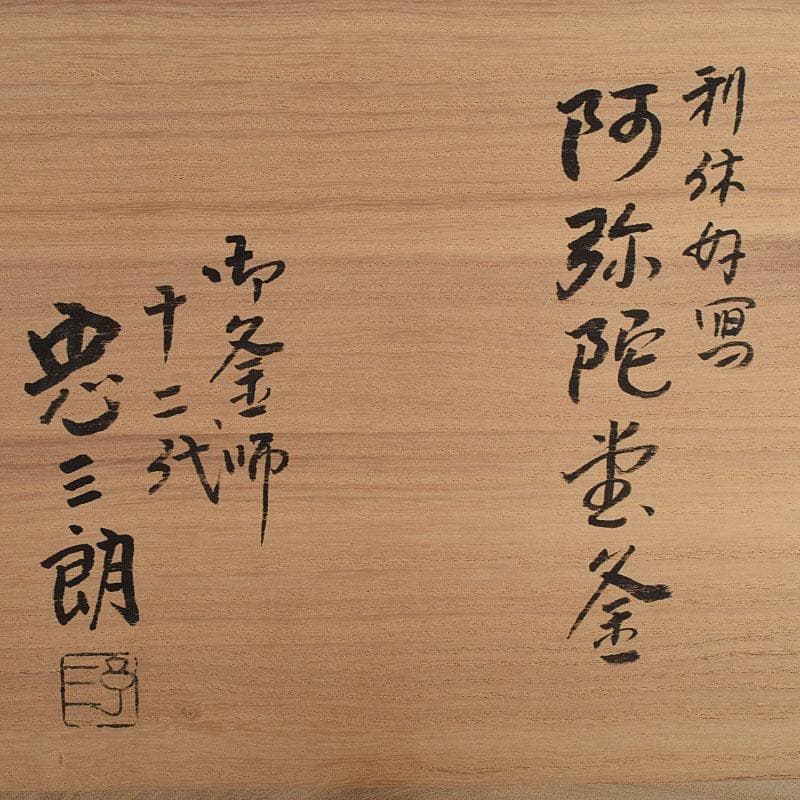 利休好冩
阿弥陀堂釜
御釜師
十二代
忠三朗